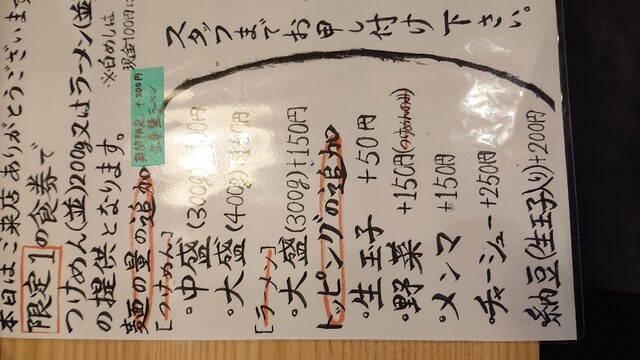 本日はご来店ありがとうございます
限定1の食券で
つけめん(並)200g又はラーメン(並)
の提供となります。
※白めしは
現金100円に
麺の量の追加
期間限定 +200円
[つけめん]
・中盛(300g)
・大盛(400g)
[ラーメン]
・大盛(300g)+150円
トッピングの追加
・生玉子 +50円
・野菜 +150円(つけめんのみ)
・メンマ +150円
・チャーシュー +250円
納豆(生玉子入り)+200円
スタッフまでお申し付け下さい。